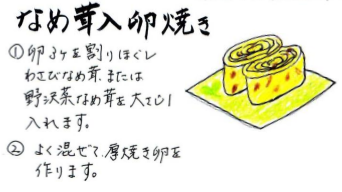 なめ茸入卵焼き
① 卵3ヶを割りほぐし
わさびなめ茸または
野沢菜なめ茸を大さじ1
入れます。
② よく混ぜて、厚焼き卵を
作ります。